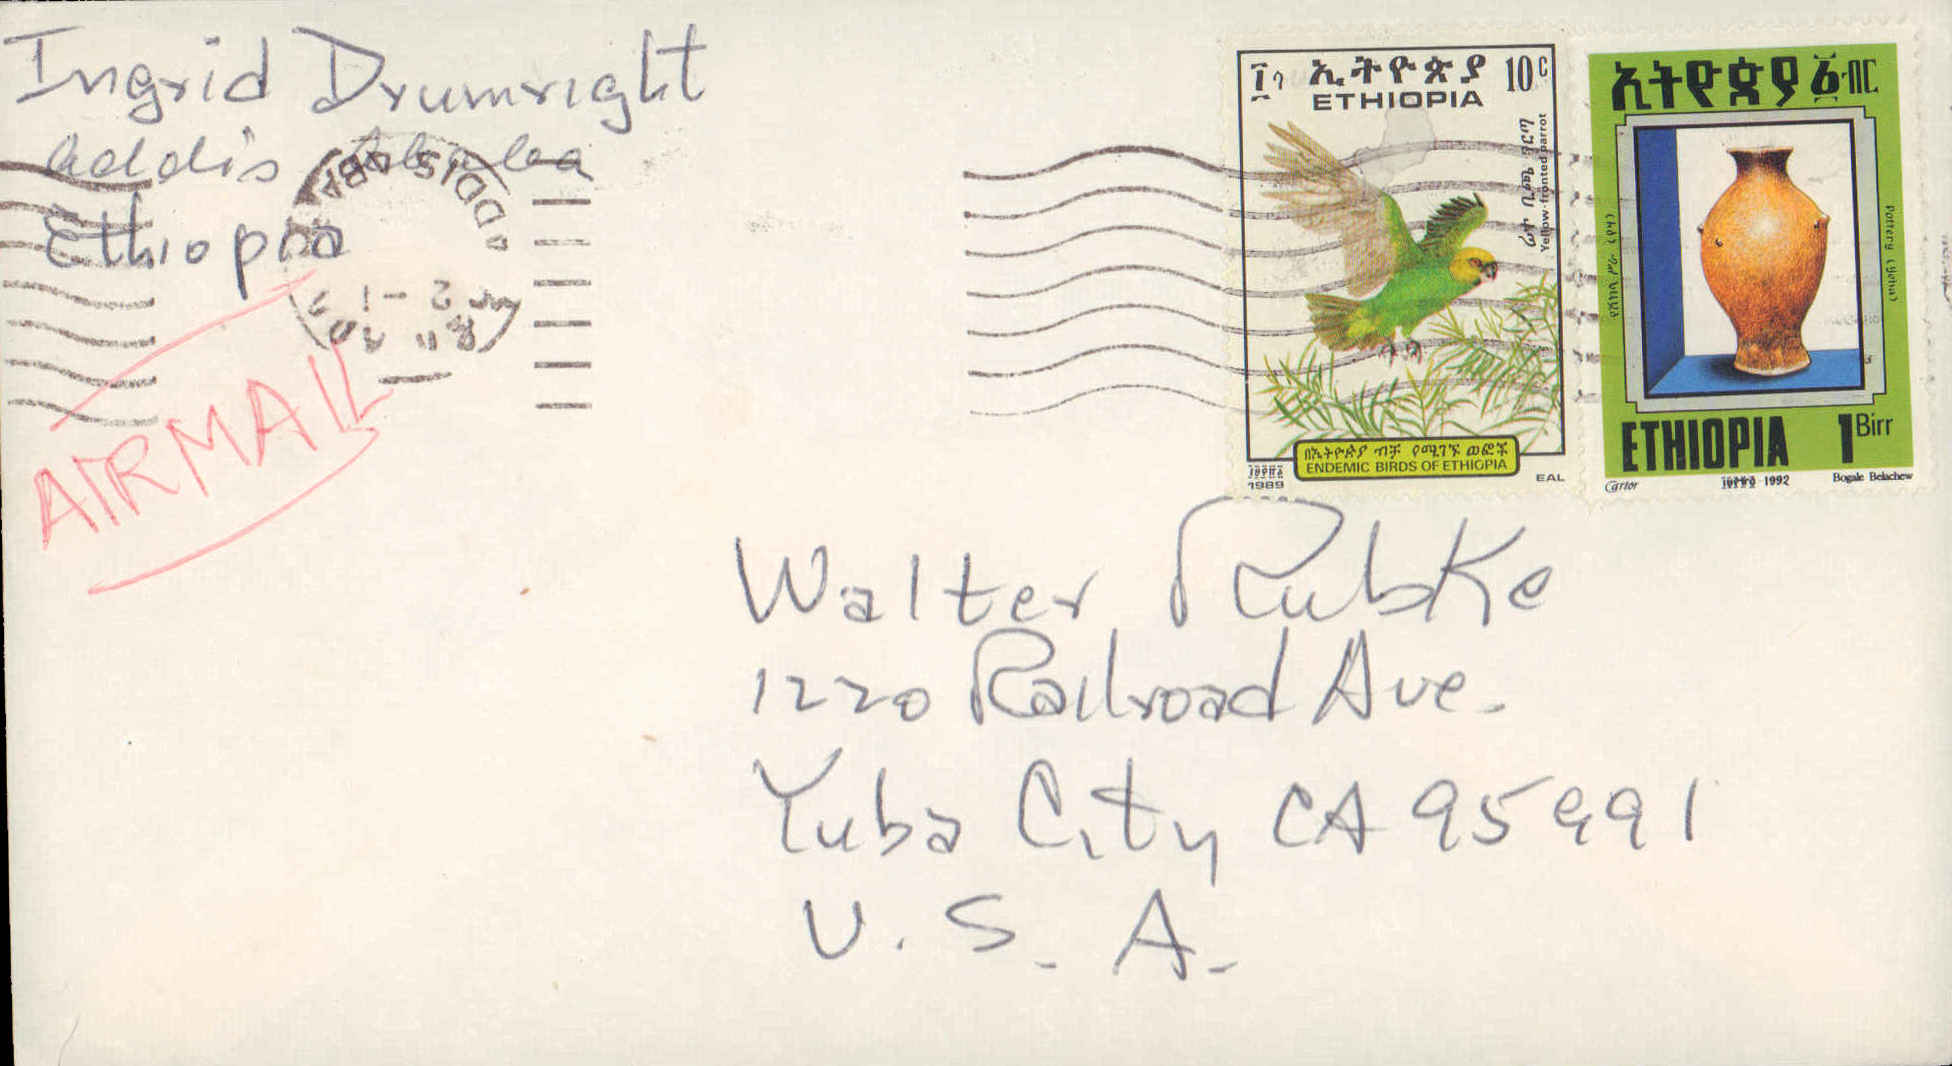 Ingrid Drumright
Addis Ababa
Ethiopia
ADDIS ABA
AIRMAIL
ኢትዮጵያ 10¢
ETHIOPIA
Yellow-fronted parrot
በኢትዮጵያ ብቻ የሚገኙ ወፎች
ENDEMIC BIRDS OF ETHIOPIA
1989
EAL
ኢትዮጵያ ፩ ብር
Pottery
ETHIOPIA 1 Birr
Cartor
1992
Bogale Belachew
Walter Rubke
1220 Railroad Ave.
Yuba City CA 95991
U.S.A.